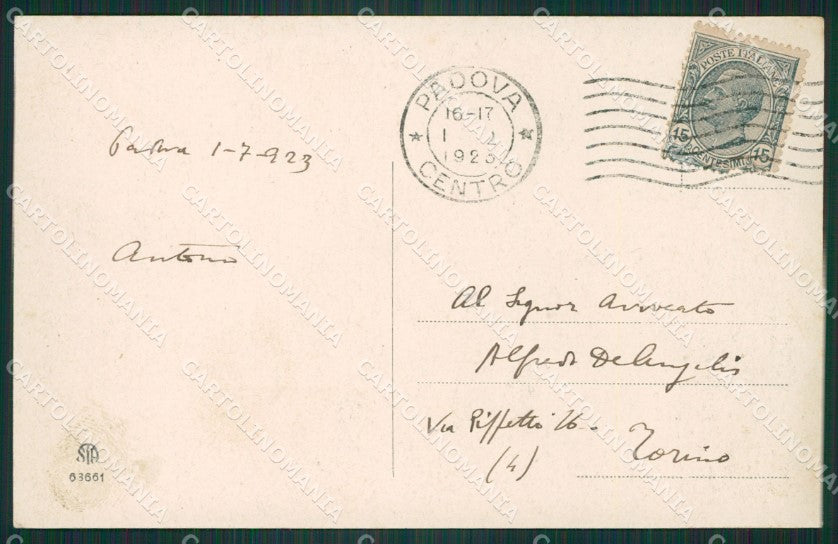 Padova 1-7-923
Antonio
STA
63661
PADOVA
16-17
1
1923
CENTRO
POSTE ITALIANE
15 CENTESIMI 15
Al Signor Avvocato
Alfredo DeAngelis
Via Piffetti 16.
(4) Torino
CARTOLINOMANIA